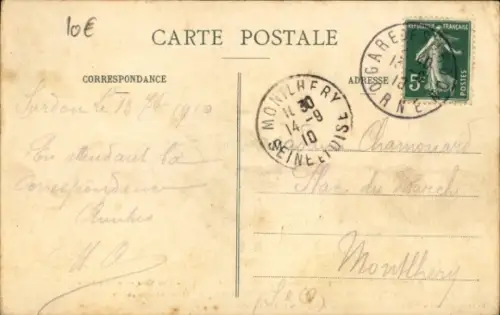 10€
CARTE POSTALE
CORRESPONDANCE
ADRESSE
REPUBLIQUE FRANÇAISE
5c
POSTES
GARE
ORNE
MONTLHERY
30
14-9
10
SEINE ET OISE
Surdon le 13 1910
En attendant la
correspondance
Chamouard
Place du Marché
Montlhery
(S.&O)